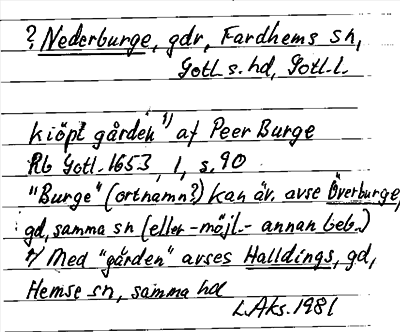 ? Nederburge, gdr, Fardhems sn,
Gotl. s. hd, Gotl. l.
kiöpt gården 1) af Peer Burge
Rb Gotl. 1653, 1, s. 90
"Burge" (ortnamn?) kan äv. avse Överburge,
gd, samma sn (eller - möjl. - annan beb.)
1/ Med "gården" avses Halldings, gd,
Hemse sn, samma hd
L.Aks. 1981